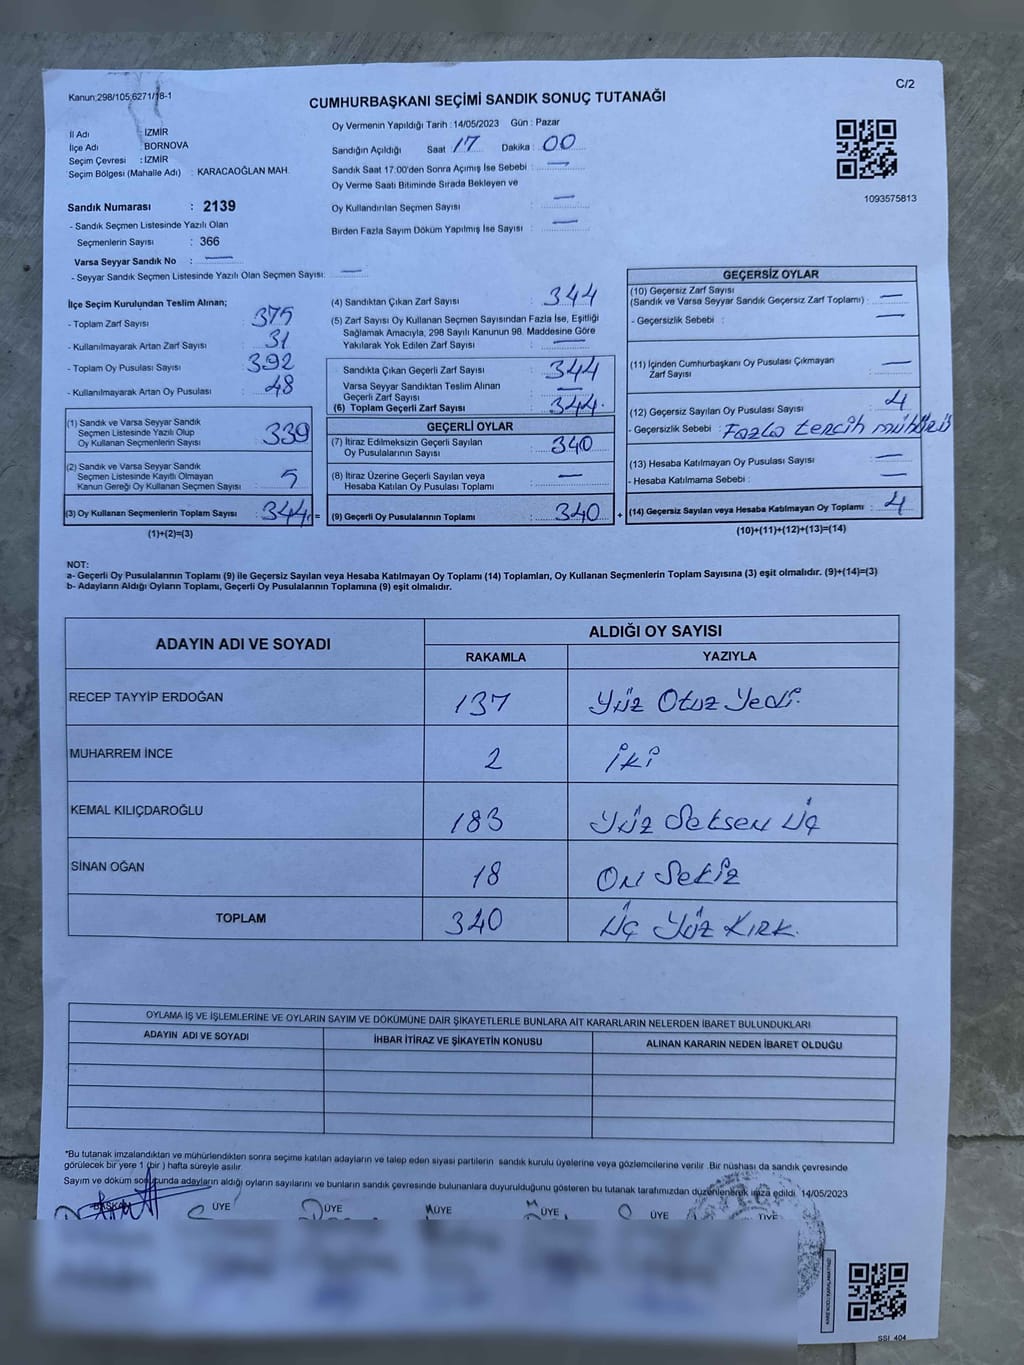 Kanun;298/105,6271/18-1
C/2
CUMHURBAŞKANI SEÇİMİ SANDIK SONUÇ TUTANAĞI
İl Adı : İZMİR
İlçe Adı : BORNOVA
Seçim Çevresi : İZMİR
Seçim Bölgesi (Mahalle Adı) : KARACAOĞLAN MAH.
Sandık Numarası : 2139
- Sandık Seçmen Listesinde Yazılı Olan
Seçmenlerin Sayısı : 366
Varsa Seyyar Sandık No : —
- Seyyar Sandık Seçmen Listesinde Yazılı Olan Seçmen Sayısı: —
Oy Vermenin Yapıldığı Tarih : 14/05/2023 Gün : Pazar
Sandığın Açıldığı Saat : 17 Dakika : 00
Sandık Saat 17:00'den Sonra Açımış İse Sebebi : —
Oy Verme Saati Bitiminde Sırada Bekleyen ve
Oy Kullandırılan Seçmen Sayısı : —
Birden Fazla Sayım Döküm Yapılmış İse Sayısı : —
1093575813
İlçe Seçim Kurulundan Teslim Alınan;
- Toplam Zarf Sayısı : 375
- Kullanılmayarak Artan Zarf Sayısı : 31
- Toplam Oy Pusulası Sayısı : 392
- Kullanılmayarak Artan Oy Pusulası : 48
(1) Sandık ve Varsa Seyyar Sandık
Seçmen Listesinde Yazılı Olup
Oy Kullanan Seçmenlerin Sayısı : 339
(2) Sandık ve Varsa Seyyar Sandık
Seçmen Listesinde Kayıtlı Olmayan
Kanun Gereği Oy Kullanan Seçmen Sayısı : 5
(3) Oy Kullanan Seçmenlerin Toplam Sayısı : 344 =
(1)+(2)=(3)
(4) Sandıktan Çıkan Zarf Sayısı : 344
(5) Zarf Sayısı Oy Kullanan Seçmen Sayısından Fazla İse, Eşitliği
Sağlamak Amacıyla, 298 Sayılı Kanunun 98. Maddesine Göre
Yakılarak Yok Edilen Zarf Sayısı : —
Sandıkta Çıkan Geçerli Zarf Sayısı : 344
Varsa Seyyar Sandıktan Teslim Alınan
Geçerli Zarf Sayısı : —
(6) Toplam Geçerli Zarf Sayısı : 344.
GEÇERLİ OYLAR
(7) İtiraz Edilmeksizin Geçerli Sayılan
Oy Pusulalarının Sayısı : 340
(8) İtiraz Üzerine Geçerli Sayılan veya
Hesaba Katılan Oy Pusulası Toplamı : —
(9) Geçerli Oy Pusulalarının Toplamı : 340 +
GEÇERSİZ OYLAR
(10) Geçersiz Zarf Sayısı
(Sandık ve Varsa Seyyar Sandık Geçersiz Zarf Toplamı) : —
- Geçersizlik Sebebi : —
(11) İçinden Cumhurbaşkanı Oy Pusulası Çıkmayan
Zarf Sayısı : —
(12) Geçersiz Sayılan Oy Pusulası Sayısı : 4
- Geçersizlik Sebebi : Fazla tercih mührü
(13) Hesaba Katılmayan Oy Pusulası Sayısı : —
- Hesaba Katılmama Sebebi : —
(14) Geçersiz Sayılan veya Hesaba Katılmayan Oy Toplamı : 4
(10)+(11)+(12)+(13)=(14)
NOT:
a- Geçerli Oy Pusulalarının Toplamı (9) ile Geçersiz Sayılan veya Hesaba Katılmayan Oy Toplamı (14) Toplamları, Oy Kullanan Seçmenlerin Toplam Sayısına (3) eşit olmalıdır. (9)+(14)=(3)
b- Adayların Aldığı Oyların Toplamı, Geçerli Oy Pusulalarının Toplamına (9) eşit olmalıdır.
ADAYIN ADI VE SOYADI
ALDIĞI OY SAYISI
RAKAMLA YAZIYLA
RECEP TAYYİP ERDOĞAN 137 Yüz Otuz Yedi.
MUHARREM İNCE 2 İki
KEMAL KILIÇDAROĞLU 183 Yüz Seksen Üç
SİNAN OĞAN 18 On Sekiz
TOPLAM 340 Üç Yüz Kırk.
OYLAMA İŞ VE İŞLEMLERİNE VE OYLARIN SAYIM VE DÖKÜMÜNE DAİR ŞİKAYETLERLE BUNLARA AİT KARARLARIN NELERDEN İBARET BULUNDUKLARI
ADAYIN ADI VE SOYADI İHBAR İTİRAZ VE ŞİKAYETİN KONUSU ALINAN KARARIN NEDEN İBARET OLDUĞU
*Bu tutanak imzalandıktan ve mühürlendikten sonra seçime katılan adayların ve talep eden siyasi partilerin sandık kurulu üyelerine veya gözlemcilerine verilir .Bir nüshası da sandık çevresinde
görülecek bir yere 1 (bir ) hafta süreyle asılır.
Sayım ve döküm sonucunda adayların aldığı oyların sayılarını ve bunların sandık çevresinde bulunanlara duyurulduğunu gösteren bu tutanak tarafımızdan düzenlenerek imza edildi. 14/05/2023
BAŞKAN ÜYE ÜYE ÜYE ÜYE ÜYE
SSI_404